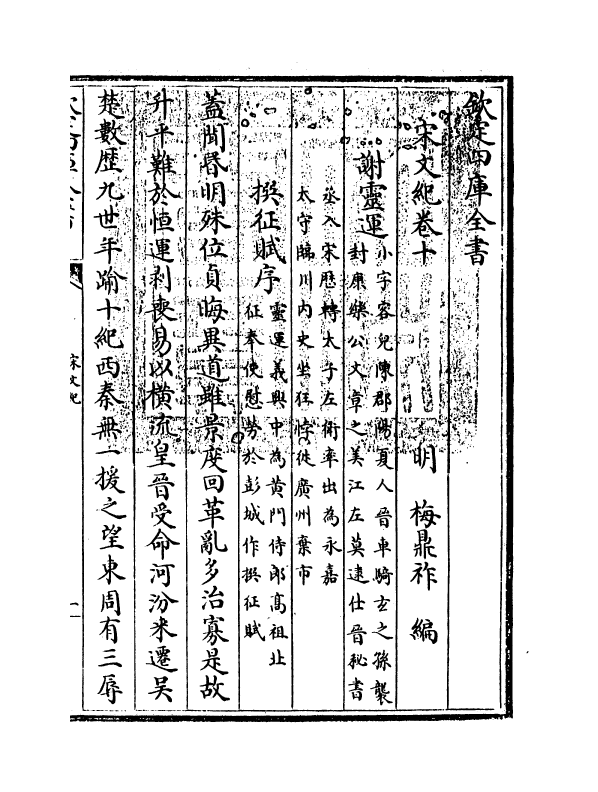 欽定四庫全書
宋文紀卷十
明 梅鼎祚 編
謝靈運
小字容兒陳郡陽夏人晉車騎玄之孫襲
封康樂公文章之美江左莫逮仕晉秘書
丞入宋歴轉太子左衛率出為永嘉
太守臨川内史坐狂悖徙廣州棄市
撰征賦序
靈運義興中為黄門侍郎髙祖北
征奉使慰勞於彭城作撰征賦
蓋聞昬明殊位貞晦異道雖景度回革亂多治寡是故
升平難於恒運剥喪易以横流皇晉受命河汾來遷吳
楚數歴九世年踰十紀西秦無一援之望東周有三辱
宋文紀
一